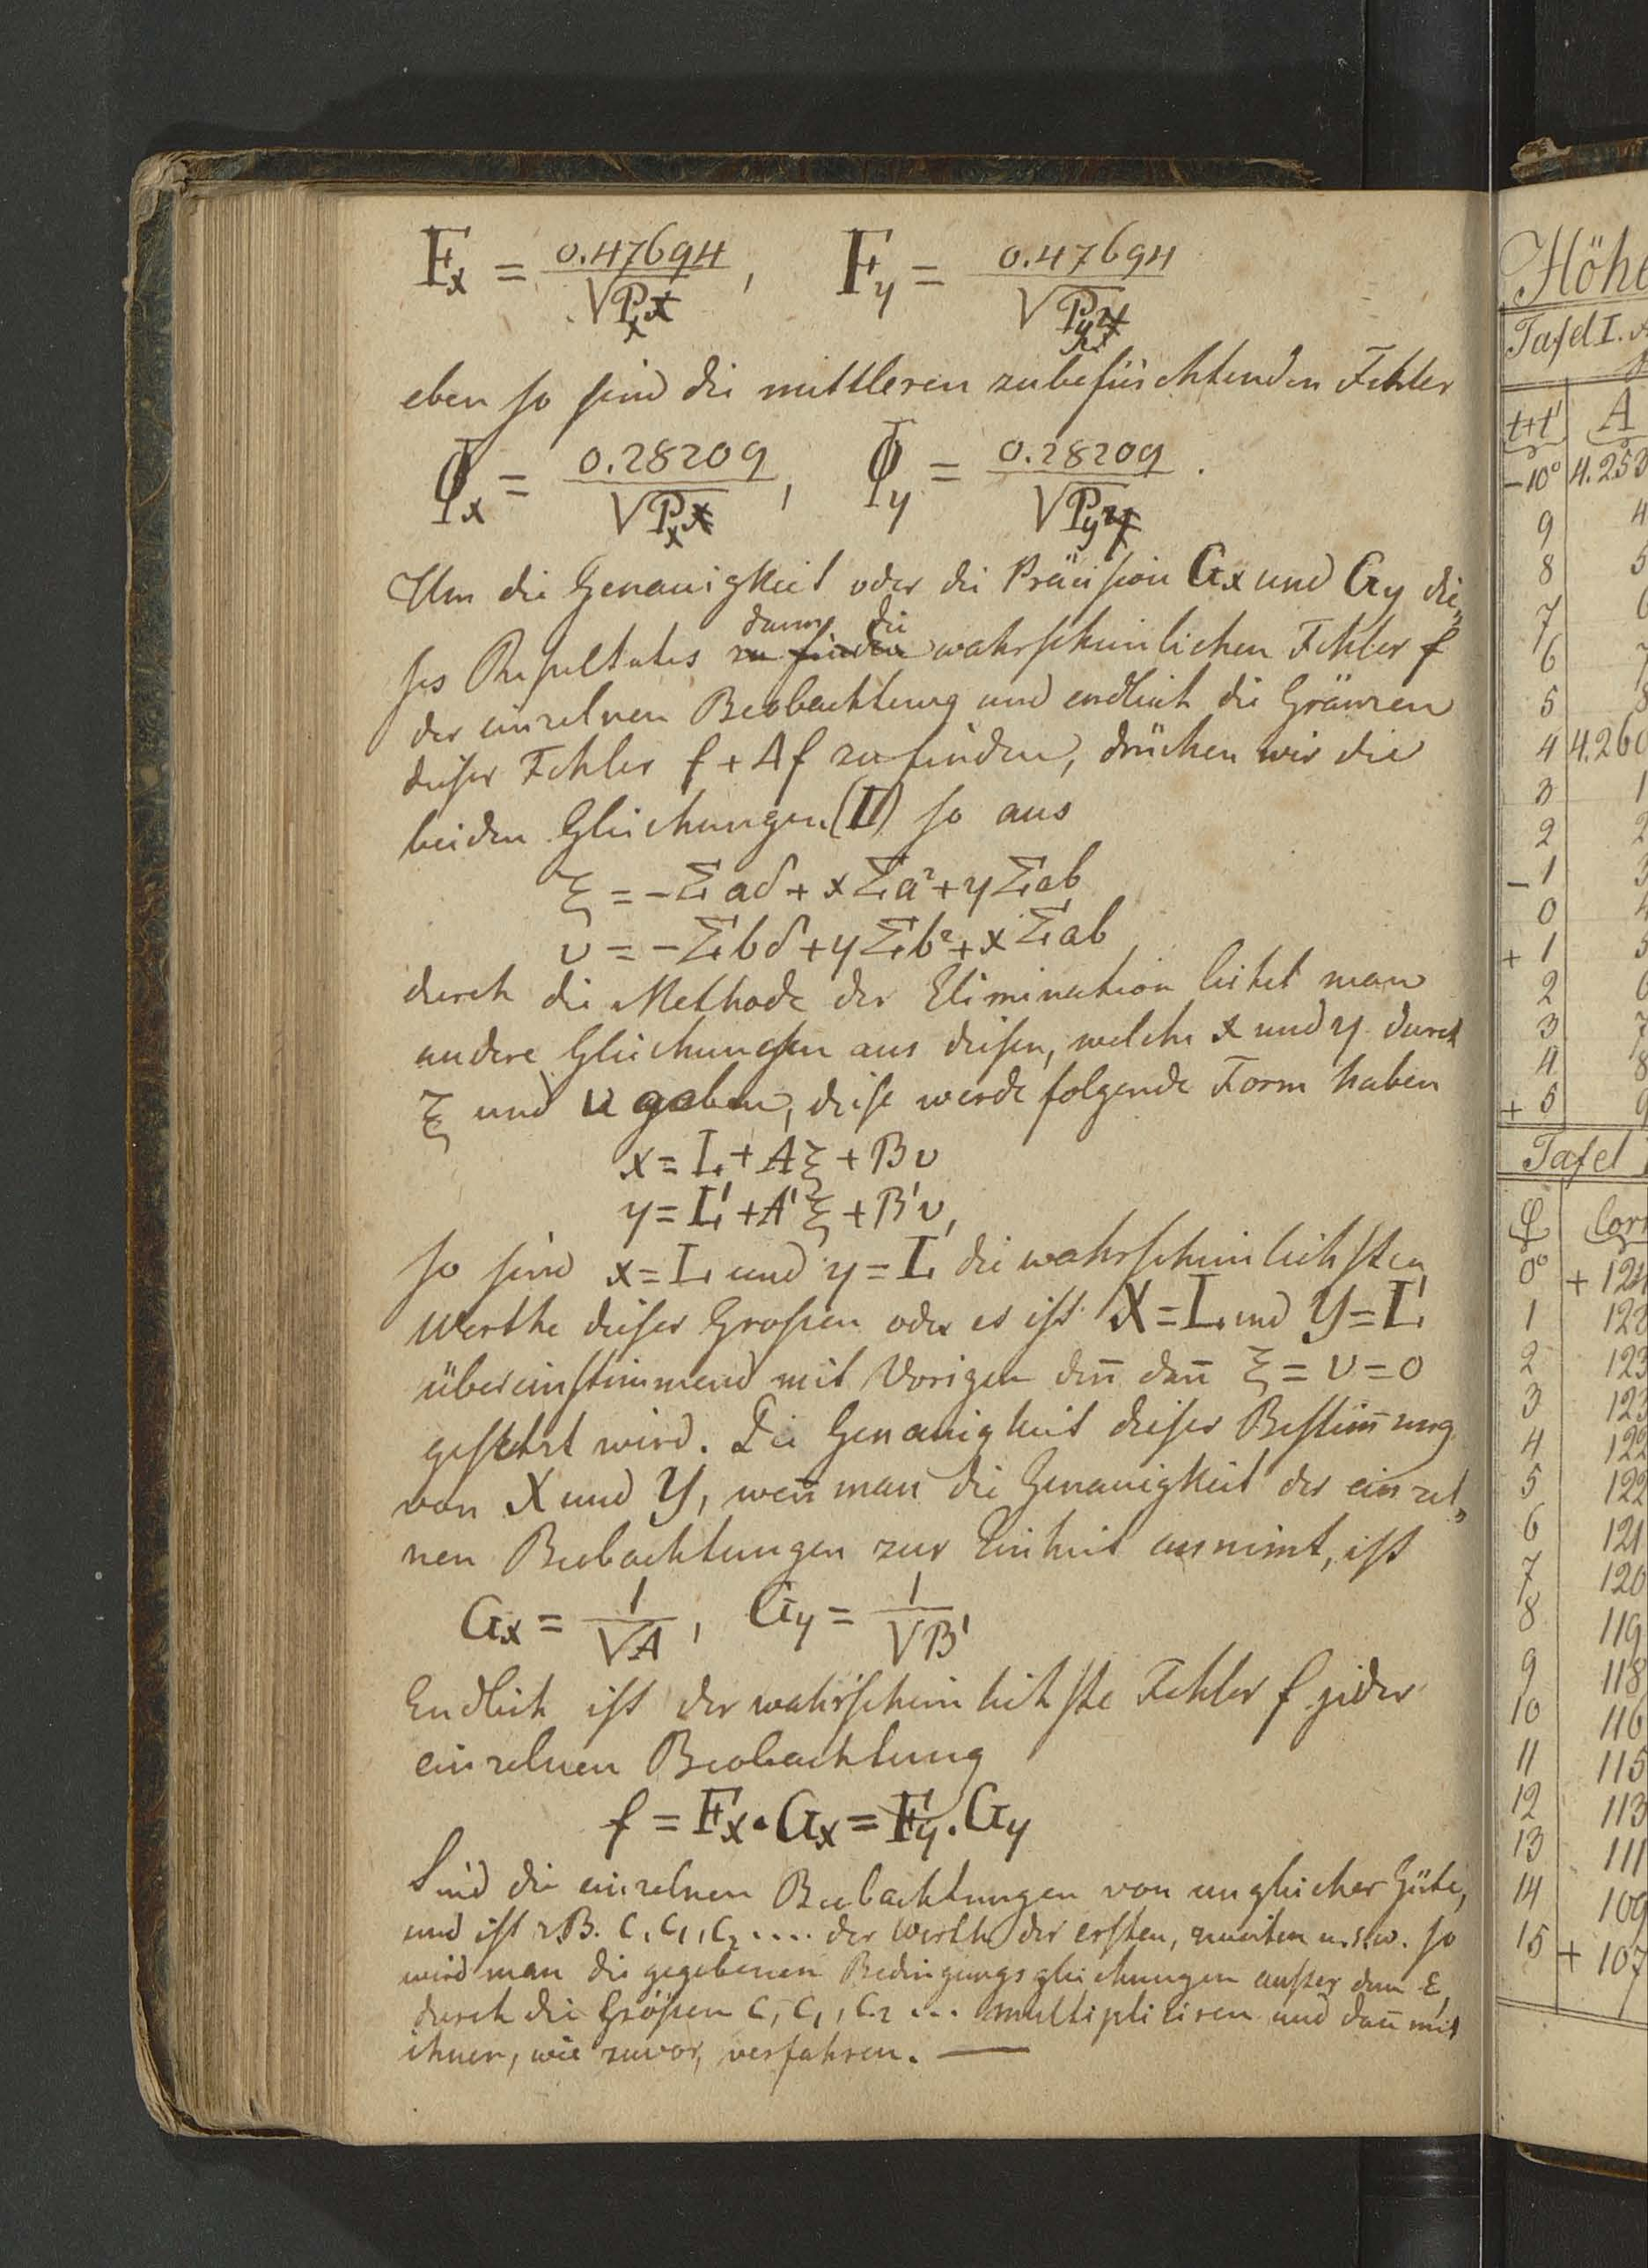 Fx = 0.47694 / √Px , Fy = 0.47694 / √Py
eben so sind die mittleren zubefürchtenden Fehler
ϕx = 0.28209 / √Px , ϕy = 0.28209 / √Py .
Um die Genauigkeit oder die Präcision Gx und Gy die„
ses Resultates dann die wahrscheinlichen Fehler f
der einzelnen Beobachtung und endlich die Gränzen
dieser Fehler f + Δf zu finden, drücken wir die
beiden Gleichungen (II) so aus
ξ = -Σaδ + xΣa² + yΣab
υ = -Σbδ + yΣb² + xΣab
durch die Methode der Elimination leitet man
andere Gleichungen aus diesen, welche x und y durch
ξ und υ geben, diese werde folgende Form haben
x = L + Aξ + Bυ
y = L' + A'ξ + B'υ,
so sind x = L und y = L die wahrscheinlichsten
Werthe dieser Grossen oder es ist X = L und Y = L'
übereinstimmend mit Vorigen deñ dañ ξ = υ = 0
gesetzt wird. Die Genauigkeit dieser Bestim̄ung
von X und Y, weñ man die Genauigkeit der einzel„
nen Beobachtungen zur Einheit annimt, ist
Gx = 1 / √A , Gy = 1 / √B'
Endlich ist der wahrscheinlichste Fehler f jeder
einzelnen Beobachtung
f = Fx . Gx = Fy . Gy
Sind die einzelnen Beobachtungen von ungleicher Güte,
und ist z.B. C, C1, C2 .... der Werth der ersten, zweiten u.s.w. so
wird man die gegebenen Bedingungsgleichungen ausser dem ε,
durch die Grössen C, C1, C2 ... multipliciren und dañ mit
ihnen, wie zuvor, verfahren. —
Höhe
Tafel I.
t+t' A
-10° 4.253
9 4
8 5
7 6
6 7
5 8
4 4.260
3 1
2 2
- 1 3
0 4
+ 1 5
2 6
3 7
4 8
+ 5 9
Tafel
φ Corr
0° +
1
2 123
3 123
4 122
5 122
6 121
7 120
8 119
9 118
10 116
11 115
12 113
13 111
14 109
15 + 107